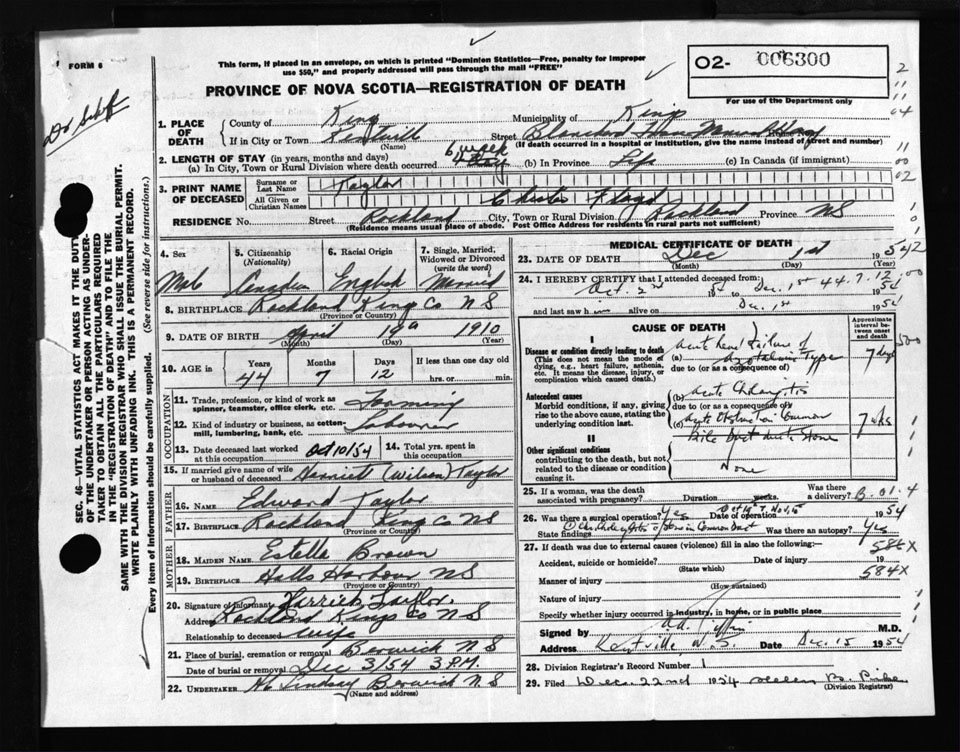 FORM 6
This form, if placed in an envelope, on which is printed "Dominion Statistics—Free, penalty for improper
use $50," and properly addressed will pass through the mail "FREE"
O2- 006300
For use of the Department only
PROVINCE OF NOVA SCOTIA—REGISTRATION OF DEATH
1. PLACE OF DEATH
County of King Municipality of Kings
If in City or Town Kentville Street Blanchard Hosp
(Name) (If death occurred in a hospital or institution, give the name instead of street and number)
2. LENGTH OF STAY (in years, months and days)
(a) In City, Town or Rural Division where death occurred (b) In Province Life (c) In Canada (if immigrant)
3. PRINT NAME OF DECEASED
Surname or Last Name Taylor
All Given or Christian Names Chester Floyd
RESIDENCE No. Street Rockland City, Town or Rural Division Rockland Province NS
(Residence means usual place of abode. Post Office Address for residents in rural parts not sufficient)
4. Sex Male
5. Citizenship (Nationality) Canadian
6. Racial Origin English
7. Single, Married, Widowed or Divorced (write the word) Married
8. BIRTHPLACE Rockland Kings Co NS
(Province or Country)
9. DATE OF BIRTH April 19 1910
(Month) (Day) (Year)
10. AGE in Years 44 Months 7 Days 12 If less than one day old hrs. or min.
OCCUPATION
11. Trade, profession, or kind of work as spinner, teamster, office clerk, etc. Farming
12. Kind of industry or business, as cotten-mill, lumbering, bank, etc. Labourer
13. Date deceased last worked at this occupation Oct 10/54
14. Total yrs. spent in this occupation
15. If married give name of wife or husband of deceased Harriett (Wilson) Taylor
FATHER
16. NAME Edward Taylor
17. BIRTHPLACE Rockland Kings Co NS
(Province or Country)
MOTHER
18. MAIDEN NAME Estella Brown
19. BIRTHPLACE Halls Harbour NS
(Province or Country)
20. Signature of informant Taylor
Address Rockland Kings Co NS
Relationship to deceased wife
21. Place of burial, cremation or removal Berwick NS
Date of burial or removal Dec 3/54 3 P.M.
22. UNDERTAKER Lindsay Berwick NS
(Name and address)
MEDICAL CERTIFICATE OF DEATH
23. DATE OF DEATH Dec 1st 54
(Month) (Day) (Year)
24. I HEREBY CERTIFY that I attended deceased from:
Oct. 2nd 54 to Dec. 1st 1954
and last saw h im alive on Dec. 1st 1954
CAUSE OF DEATH
Approximate interval between onset and death
I
Disease or condition directly leading to death
(This does not mean the mode of dying, e.g., heart failure, asthenia, etc. It means the disease, injury, or complication which caused death.)
(a) Acute renal failure of
Type 7 days
due to (or as a consequence of)
Antecedent causes
Morbid conditions, if any, giving rise to the above cause, stating the underlying condition last.
(b) Acute Cholangitis
due to (or as a consequence of)
(c) Acute Obstruction Common
Bile Duct due to Stone 7 wks
II
Other significant conditions
contributing to the death, but not related to the disease or condition causing it.
None
25. If a woman, was the death associated with pregnancy? Duration weeks. Was there a delivery?
26. Was there a surgical operation? Yes Date of operation 1954
State findings Was there an autopsy? Yes
27. If death was due to external causes (violence) fill in also the following:—
Accident, suicide or homicide? Date of injury 19
(State which)
Manner of injury
(How sustained)
Nature of injury
Specify whether injury occurred in industry, in home, or in public place
Signed by M.D.
Address Kentville N.S. Date Dec. 15 1954
28. Division Registrar's Record Number 1
29. Filed Dec. 22nd 1954 Helen B.
(Division Registrar)
586X
584X
SEC. 46—VITAL STATISTICS ACT MAKES IT THE DUTY
OF THE UNDERTAKER OR PERSON ACTING AS UNDER-
TAKER TO OBTAIN ALL THE PARTICULARS REQUIRED
IN THE "REGISTRATION OF DEATH" AND TO FILE THE
SAME WITH THE DIVISION REGISTRAR WHO SHALL ISSUE THE BURIAL PERMIT.
WRITE PLAINLY WITH UNFADING INK. THIS IS A PERMANENT RECORD.
Every item of information should be carefully supplied. (See reverse side for instructions.)